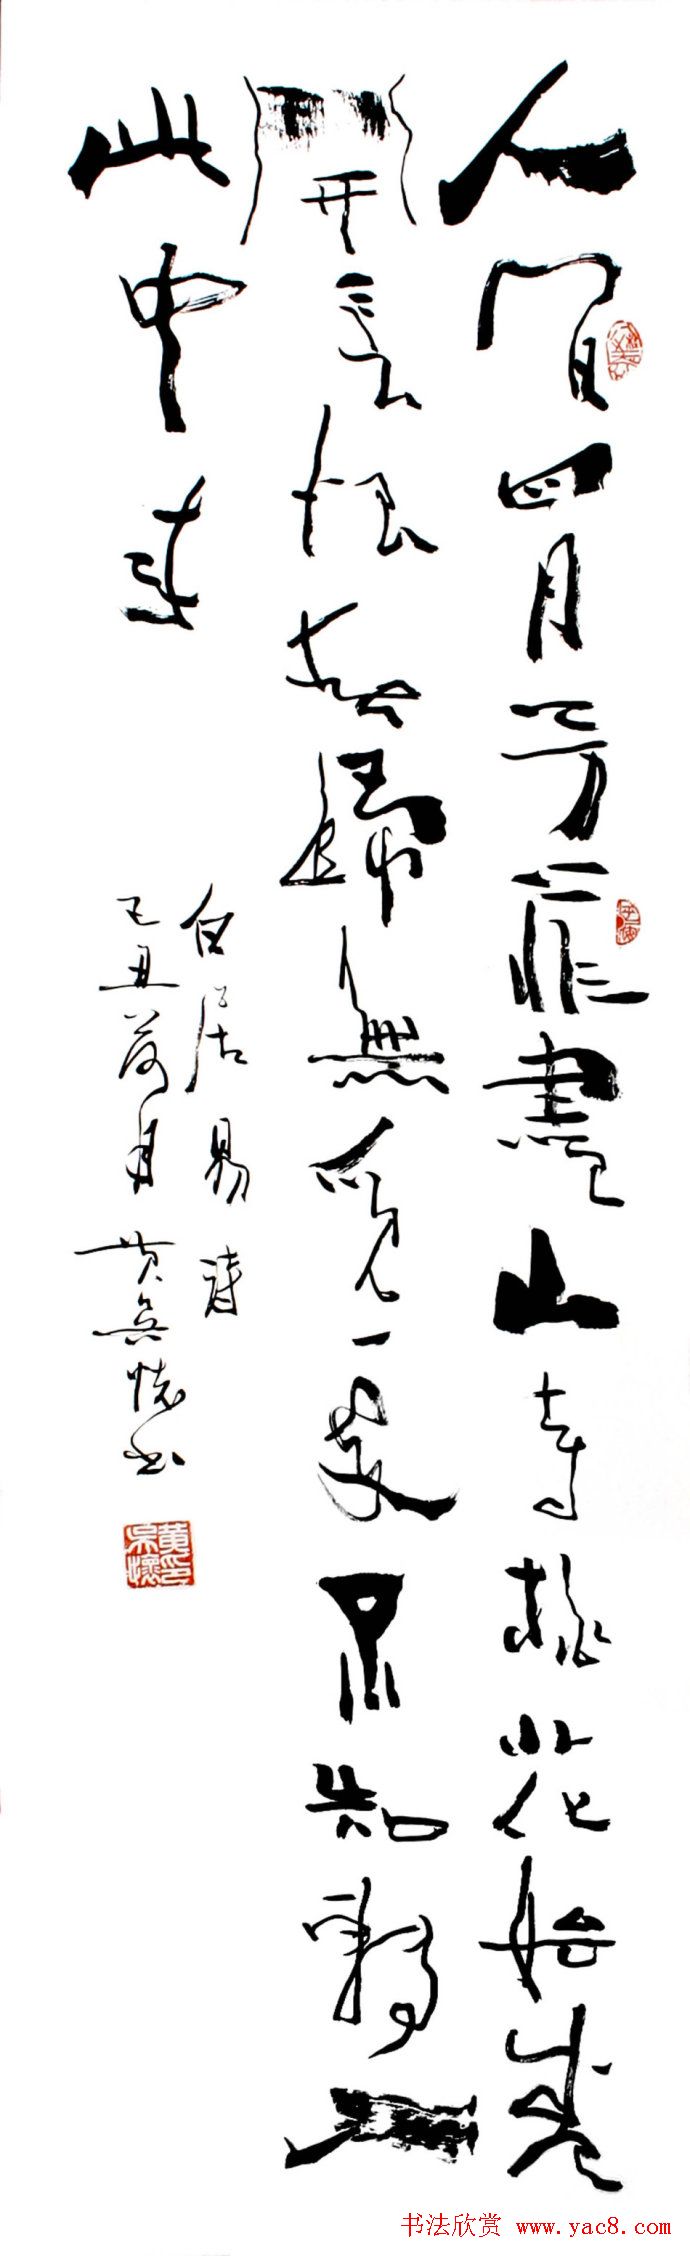 人間四月芳菲盡山寺桃花始盛
開長恨春歸無覓處不知轉入
此中来
白居易詩
己丑荷月黄吴懷书
黄印吴懷
书法欣赏 www.yac8.com